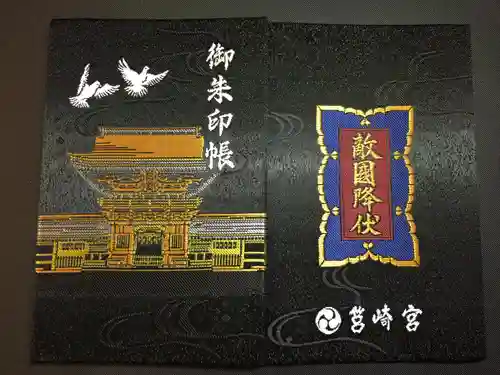 御朱印帳
敵國降伏
筥崎宮